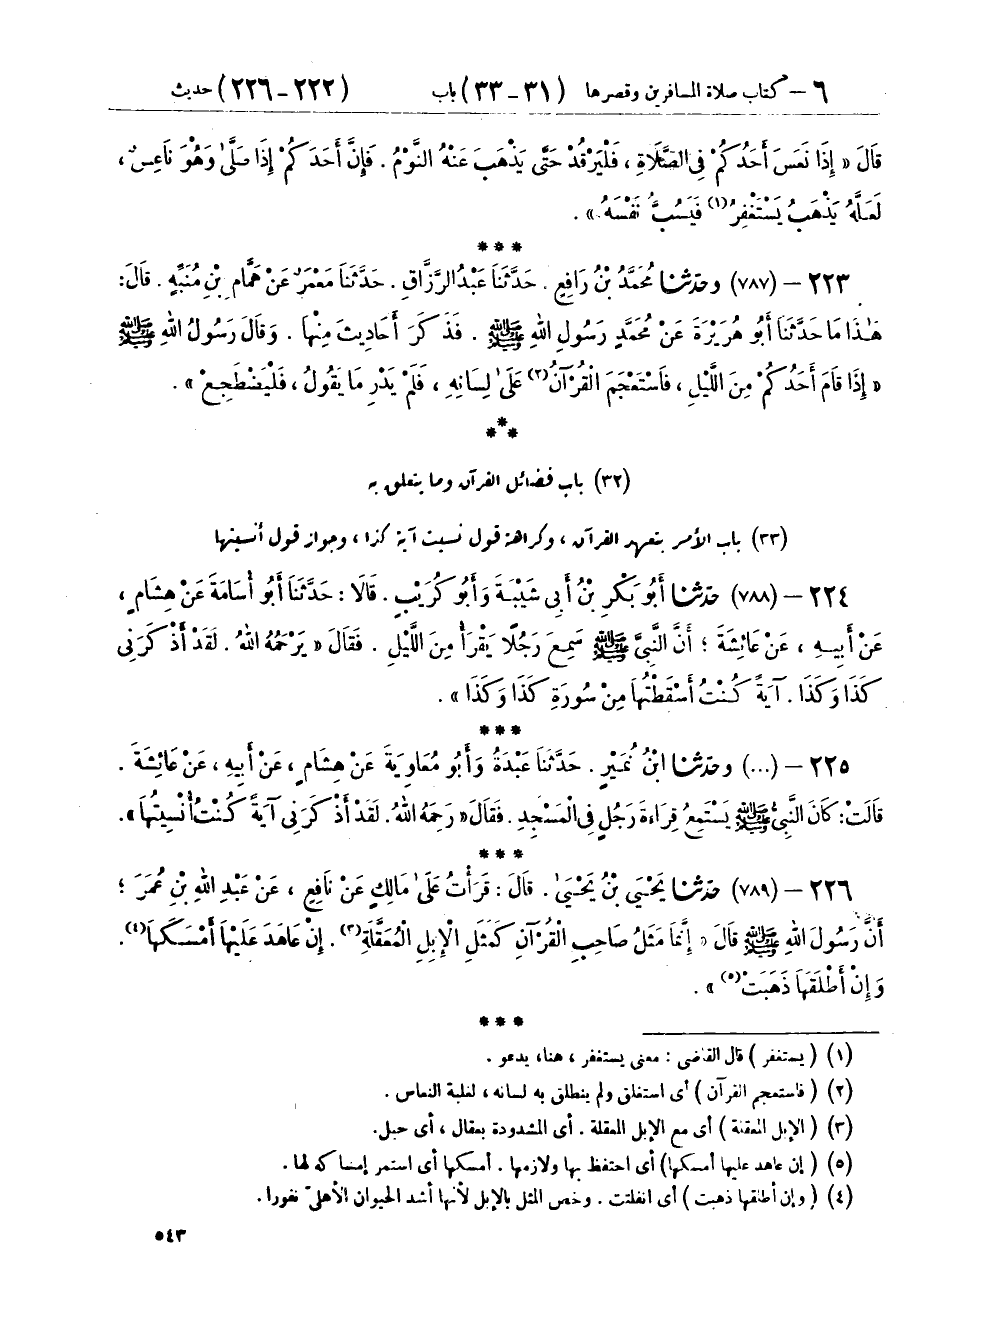 ٦ – كتاب صلاة المسافرين وقصرها (٣١ – ٣٣) باب (٢٢٢ – ٢٢٦) حديث
قَالَ « إِذَا نَعَسَ أَحَدُكُمْ فِي الصَّلَاةِ ، فَلْيَرْقُدْ حَتَّى يَذْهَبَ عَنْهُ النَّوْمُ . فَإِنَّ أَحَدَكُمْ إِذَا صَلَّى وَهُوَ نَاعِسٌ ،
لَعَلَّهُ يَذْهَبُ يَسْتَغْفِرُ(١) فَيَسُبُّ نَفْسَهُ » .
***
٢٢٣ – (٧٨٧) وحَدَّثَنَا مُحَمَّدُ بْنُ رَافِعٍ . حَدَّثَنَا عَبْدُ الرَّزَّاقِ . حَدَّثَنَا مَعْمَرٌ عَنْ هَمَّامِ بْنِ مُنَبِّهٍ . قَالَ :
هَٰذَا مَا حَدَّثَنَا أَبُو هُرَيْرَةَ عَنْ مُحَمَّدٍ رَسُولِ اللهِ ﷺ . فَذَكَرَ أَحَادِيثَ مِنْهَا . وَقَالَ رَسُولُ اللهِ ﷺ
« إِذَا قَامَ أَحَدُكُمْ مِنَ اللَّيْلِ ، فَاسْتَعْجَمَ الْقُرْآنُ(٢) عَلَىٰ لِسَانِهِ ، فَلَمْ يَدْرِ مَا يَقُولُ ، فَلْيَضْطَجِعْ » .
***
(٣٢) باب فضائل القرآن وما يتعلق به
(٣٣) باب الأمر بتعهد القرآن ، وكراهة قول نسيت آية كذا ، وجواز قول أنسيتها
٢٢٤ – (٧٨٨) حَدَّثَنَا أَبُو بَكْرِ بْنُ أَبِي شَيْبَةَ وَأَبُو كُرَيْبٍ . قَالَا : حَدَّثَنَا أَبُو أُسَامَةَ عَنْ هِشَامٍ ،
عَنْ أَبِيهِ ، عَنْ عَائِشَةَ ؛ أَنَّ النَّبِيَّ ﷺ سَمِعَ رَجُلًا يَقْرَأُ مِنَ اللَّيْلِ . فَقَالَ « يَرْحَمُهُ اللهُ . لَقَدْ أَذْكَرَنِي
كَذَا وَكَذَا . آيَةً كُنْتُ أَسْقَطْتُهَا مِنْ سُورَةِ كَذَا وَكَذَا » .
***
٢٢٥ – (...) وحَدَّثَنَا ابْنُ نُمَيْرٍ . حَدَّثَنَا عَبْدَةُ وَأَبُو مُعَاوِيَةَ عَنْ هِشَامٍ ، عَنْ أَبِيهِ ، عَنْ عَائِشَةَ .
قَالَتْ : كَانَ النَّبِيُّ ﷺ يَسْتَمِعُ قِرَاءَةَ رَجُلٍ فِي الْمَسْجِدِ . فَقَالَ « رَحِمَهُ اللهُ . لَقَدْ أَذْكَرَنِي آيَةً كُنْتُ أُنْسِيتُهَا » .
***
٢٢٦ – (٧٨٩) حَدَّثَنَا يَحْيَى بْنُ يَحْيَىٰ . قَالَ : قَرَأْتُ عَلَىٰ مَالِكٍ عَنْ نَافِعٍ ، عَنْ عَبْدِ اللهِ بْنِ عُمَرَ ؛
أَنَّ رَسُولَ اللهِ ﷺ قَالَ « إِنَّمَا مَثَلُ صَاحِبِ الْقُرْآنِ كَمَثَلِ الْإِبِلِ الْمُعَقَّلَةِ(٣) . إِنْ عَاهَدَ عَلَيْهَا أَمْسَكَهَا(٤) .
وَإِنْ أَطْلَقَهَا ذَهَبَتْ(٥) » .
***
(١) ( يستغفر ) قال القاضى : معنى يستغفر ، هنا ، يدعو .
(٢) ( فاستعجم القرآن ) أى استغلق ولم ينطلق به لسانه ، لغلبة النعاس .
(٣) ( الإبل المعقلة ) أى مع الإبل المعقلة . أى المشدودة بعقال ، أى حبل .
(٥) ( إن عاهد عليها أمسكها ) أى احتفظ بها ولازمها . أمسكها أى استمر إمساكه لها .
(٤) ( وإن أطلقها ذهبت ) أى انفلتت . وخص المثل بالإبل لأنها أشد الحيوان الأهلىّ نفورا .
٥٤٣